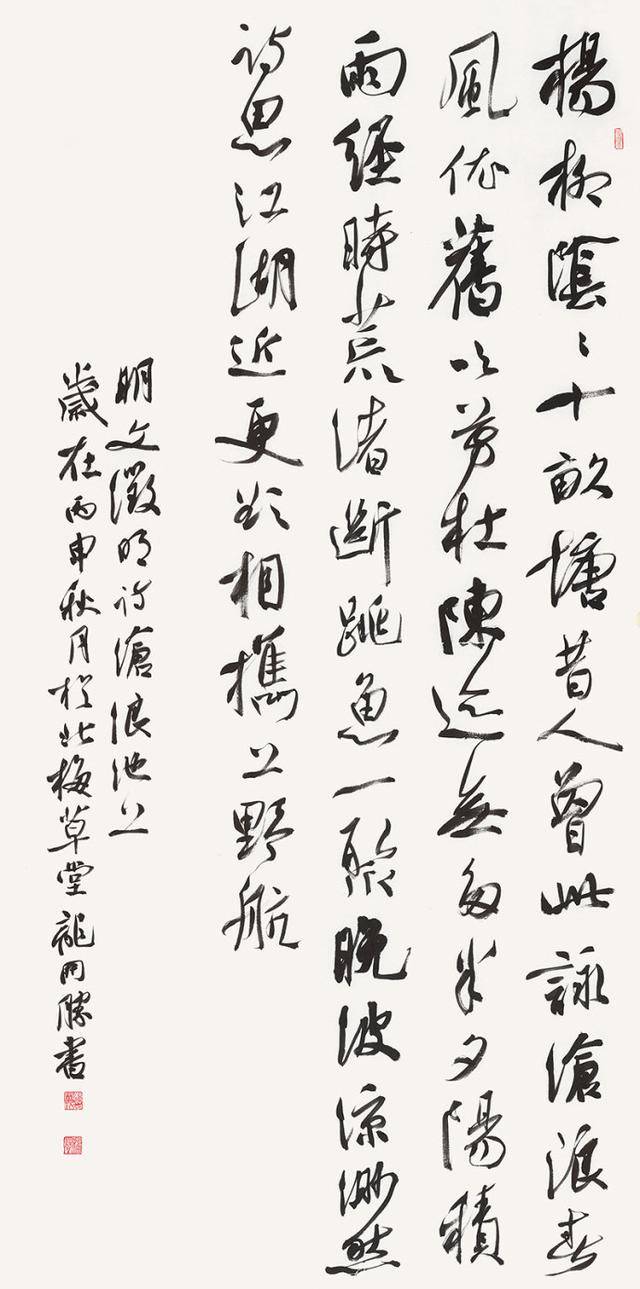 楊柳陰〻十畝塘昔人曾此詠滄浪春
風依舊吹芳杜陳迹無多半夕陽積
雨經時荒渚斷跳魚一聚晚波涼渺然
詩思江湖近更欲相攜上野航
明文徵明詩滄浪池上
歲在丙申秋月於北梅草堂龍開勝書